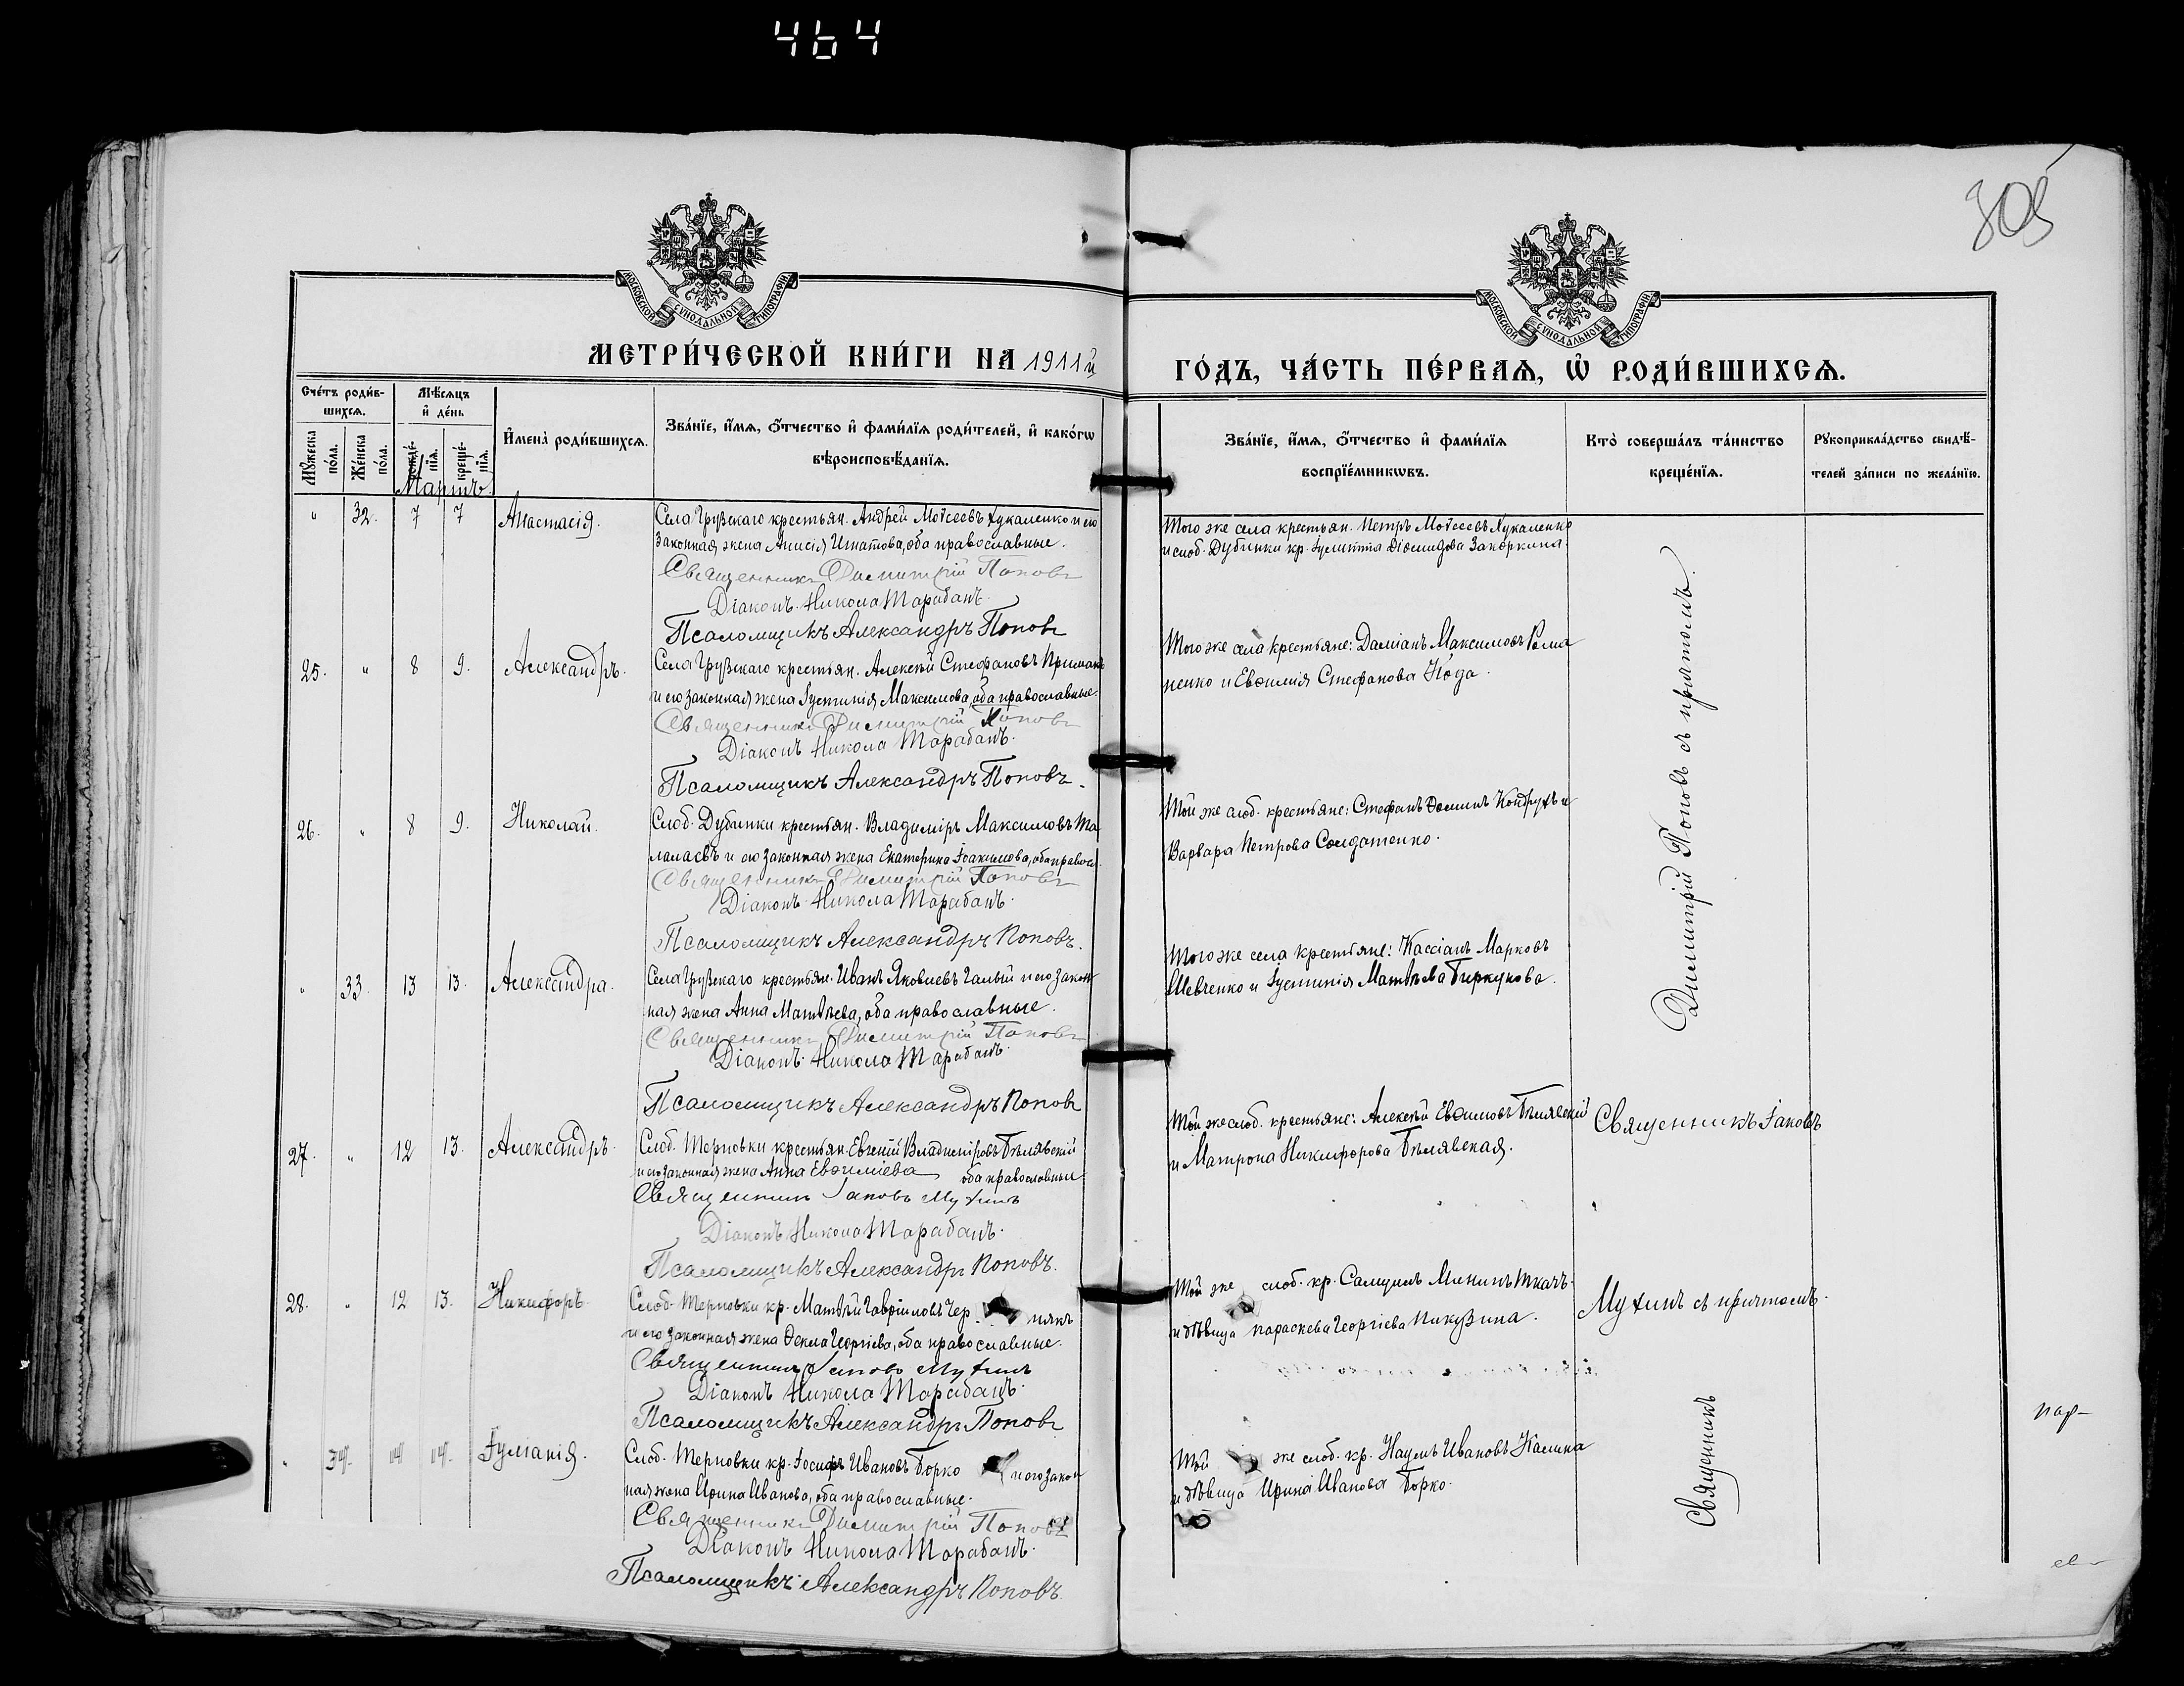 464
305
МОСКОВСКОЙ СУНОДАЛЬНОЙ ТИПОГРАФІИ
МОСКОВСКОЙ СУНОДАЛЬНОЙ ТИПОГРАФІИ
МЕТРИ́ЧЕСКОЙ КНИ́ГИ НА 1911й
ГО́ДЪ, ЧА́СТЬ ПЕ́РВАѦ, Ѡ҆ РОДИ́ВШИХСѦ.
Сче́тъ роди́в-
шихсѧ.
Мꙋжеска по́ла.
Же́нска по́ла.
Мѣ́сѧцъ
и҆ де́нь
рожде́-
нїѧ.
креще́-
нїѧ.
И҆мена̀ роди́вшихсѧ.
Зва́нїе, и҆́мѧ, ѻ҆́тчество и҆ фами́лїѧ роди́телей, и҆ како́гѡ
вѣроисповѣ́данїѧ.
Зва́нїе, и҆́мѧ, ѻ҆́тчество и҆ фами́лїѧ
воспрїе́мникѡвъ.
Кто̀ соверша́лъ та́инство
креще́нїѧ.
Рꙋкоприкла́дство свидѣ́-
телей за́писи по жела́нїю.
Мартъ.
" 32. 7 7 Анастасія.
Села Грузскаго крестьян. Андрей Моѵсеевъ Чукаленко и его
законная жена Анисія Игнатова, оба православные.
Священникъ Димитрій Поповъ
Діаконъ Никола Тарабанъ.
Псаломщикъ Александръ Поповъ
Того же села крестьян. Петръ Моѵсеевъ Чукаленко
и слоб. Дубинки кр. Іулитта Діомидова Закоркина.
25. " 8 9. Александръ.
Села Грузскаго крестьян. Алексѣй Стефановъ Примакъ
и его законная жена Іустинія Максимова, оба православные.
Священникъ Димитрій Поповъ
Діаконъ Никола Тарабанъ.
Псаломщикъ Александръ Поповъ.
Того же села крестьяне: Даміанъ Максимовъ Рома
ненко и Евѳимія Стефанова Нода.
26. " 8 9. Николай.
Слоб. Дубинки крестьян. Владиміръ Максимовъ Ма
лалаевъ и его законная жена Екатерина Іоакимова, оба правосл.
Священникъ Димитрій Поповъ
Діаконъ Никола Тарабанъ.
Псаломщикъ Александръ Поповъ.
Той же слоб. крестьяне: Стефанъ Ѳоминъ Кондрухъ и
Варвара Петрова Солдатенко.
" 33. 13 13. Александра.
Села Грузскаго крестьян. Иванъ Яковлевъ Галый и его закон
ная жена Анна Матвѣева, оба православные.
Священникъ Димитрій Поповъ
Діаконъ Никола Тарабанъ.
Псаломщикъ Александръ Поповъ
Того же села крестьяне: Кассіанъ Марковъ
Шевченко и Іустинія Матвѣева Биркукова.
Димитрій Поповъ съ причтомъ.
27. " 12 13. Александръ.
Слоб. Терновки крестьян. Евгеній Владиміровъ Бѣлявскій
и его законная жена Анна Евѳиміева оба православные
Священникъ Іаковъ Мухинъ
Діаконъ Никола Тарабанъ.
Псаломщикъ Александръ Поповъ.
Той же слоб. крестьяне: Алексѣй Евѳимовъ Бѣлявскій
и Матрона Никифорова Бѣлявская.
Священникъ Іаковъ
28. " 12 13. Никифоръ.
Слоб. Терновки кр. Матвѣй Гавріиловъ Чер някъ
и его законная жена Ѳекла Георгіева, оба православные.
Священникъ Іаковъ Мухинъ
Діаконъ Никола Тарабанъ.
Псаломщикъ Александръ Поповъ
Той же слоб. кр. Самуилъ Мининъ Ткачъ.
и дѣвица Параскева Георгіева Пикузина.
Мухинъ съ причтомъ.
" 34. 14 14. Іуліанія.
Слоб. Терновки кр. Іосифъ Ивановъ Борко и его закон
ная жена Ирина Иванова, оба православные.
Священникъ Димитрій Поповъ
Діаконъ Никола Тарабанъ.
Псаломщикъ Александръ Поповъ.
Той же слоб. кр. Наумъ Ивановъ Калина
и дѣвица Ирина Иванова Борко.
Священникъ